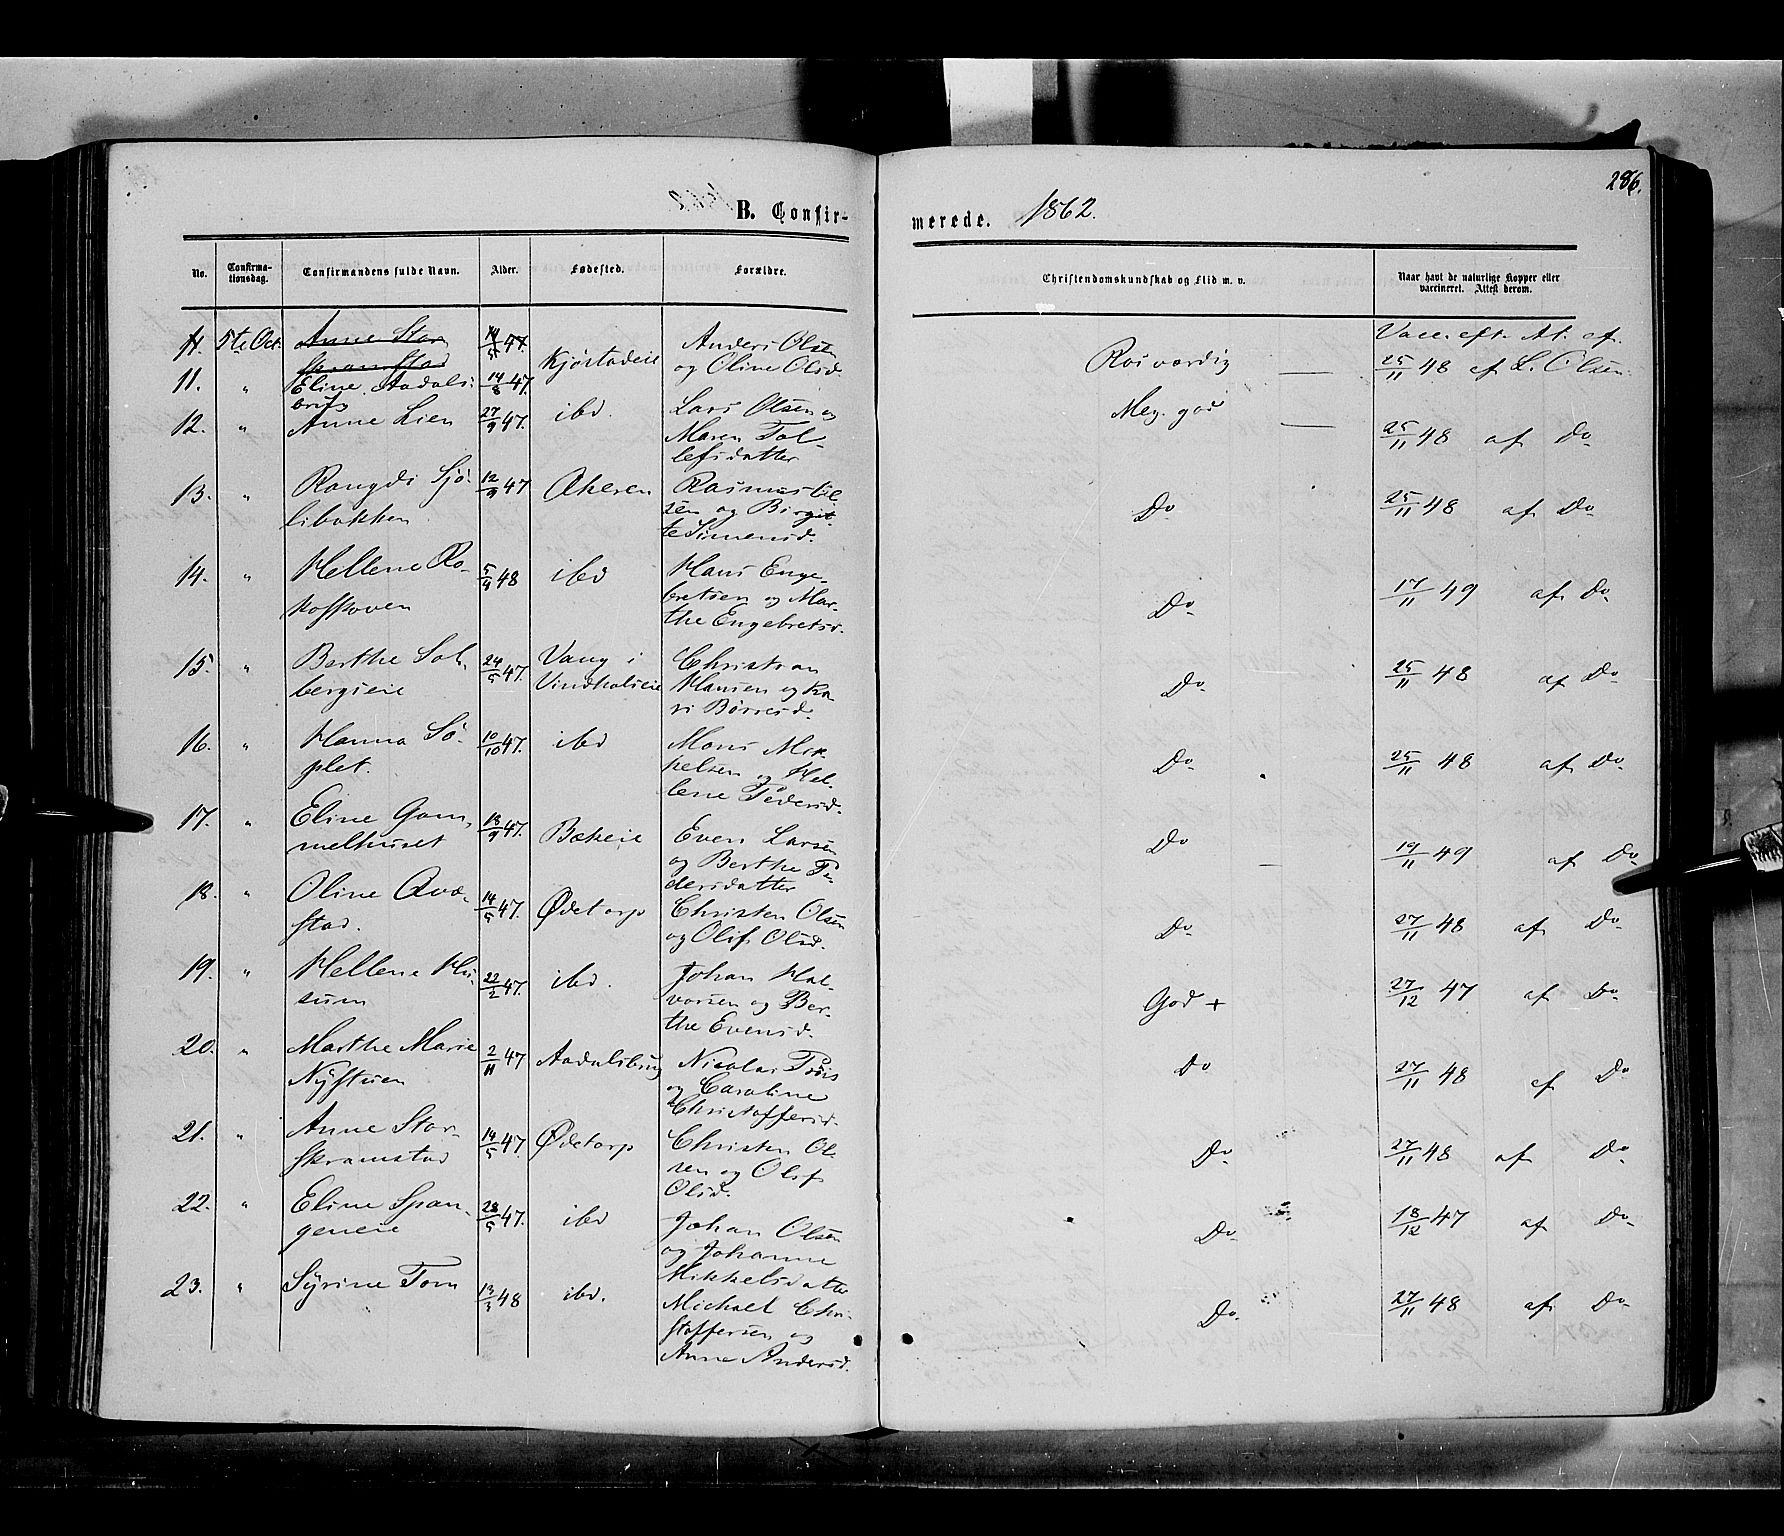 286.
B. Confir-
merede. 1862.
No.
Confirma-
tionsdag.
Confirmandens fulde Navn.
Alder.
Fødested.
Forældre.
Christendomskundskab og Flid m. v.
Naar havt de naturlige Kopper eller
vaccineret. Attest derom.
11. 5te Oct. Anne Stor 14/5 47.
Skramstad
11. " Eline Aadals- 14/8 47. Kjøstadeie Anders Olsen
brug og Oline Olsd. Rosværdig Vacc. eft. At. af
25/11 48 af L. Olsen.
12. " Anne Lien 27/9 47. ibd. Lars Olsen og
Maren Tol-
lefsdatter Meg. god 25/11 48 af Do
13. " Rangdi Sjø- 12/9 47 Akeren Rasmus
libakken sen og Birgit-
te Simensd. Do 25/11 48 af Do
14. " Hellene Ro- 5/4 48 ibd Hans Enge-
koskoven bretsen og Mar-
the Engebretsd. Do 17/11 49 af Do
15. " Berthe Sol- 24/5 47. Vang i Christian
bergseie Vindholseie Hansen og Ka-
ri Børresd. Do 25/11 48 af Do
16. " Hanna Sø- 10/10 47. ibd Mons Mik-
plet. kelsen og Hel-
lene Pedersd. Do 25/11 48 af Do
17. " Eline Gam- 18/9 47. Bækeie Even Larsen
melhuset og Berthe Pe-
dersdatter Do 19/11 49 af Do
18. " Oline Qvæ- 14/5 47. Ødetorp Christen Olsen
stad. og Olif Olsd. Do 27/11 48 af Do
19. " Hellene Hu- 22/2 47. ibd. Johan Hal-
sum vorsen og Ber-
the Evensd. God + 27/12 47 af Do
20. " Marthe Marie 2/11 47 Aadalsbrug Nicolai
Nystuen og Caroline
Christoffersd. Do 27/11 48 af Do
21. " Anne Stor- 14/5 47 Ødetorp Christen Ol-
skramstad sen og Olif
Olsd. Do 27/11 48 af Do
22. " Eline Span- 28/5 47. ibd Johan Olsen
geneie og Johanne
Mikkelsdatter Do 18/12 47 af Do
23. " Syrine Tom 13/3 48 ibd. Michael Chri-
stoffersen og
Anne Andersd. Do. 27/11 48 af Do